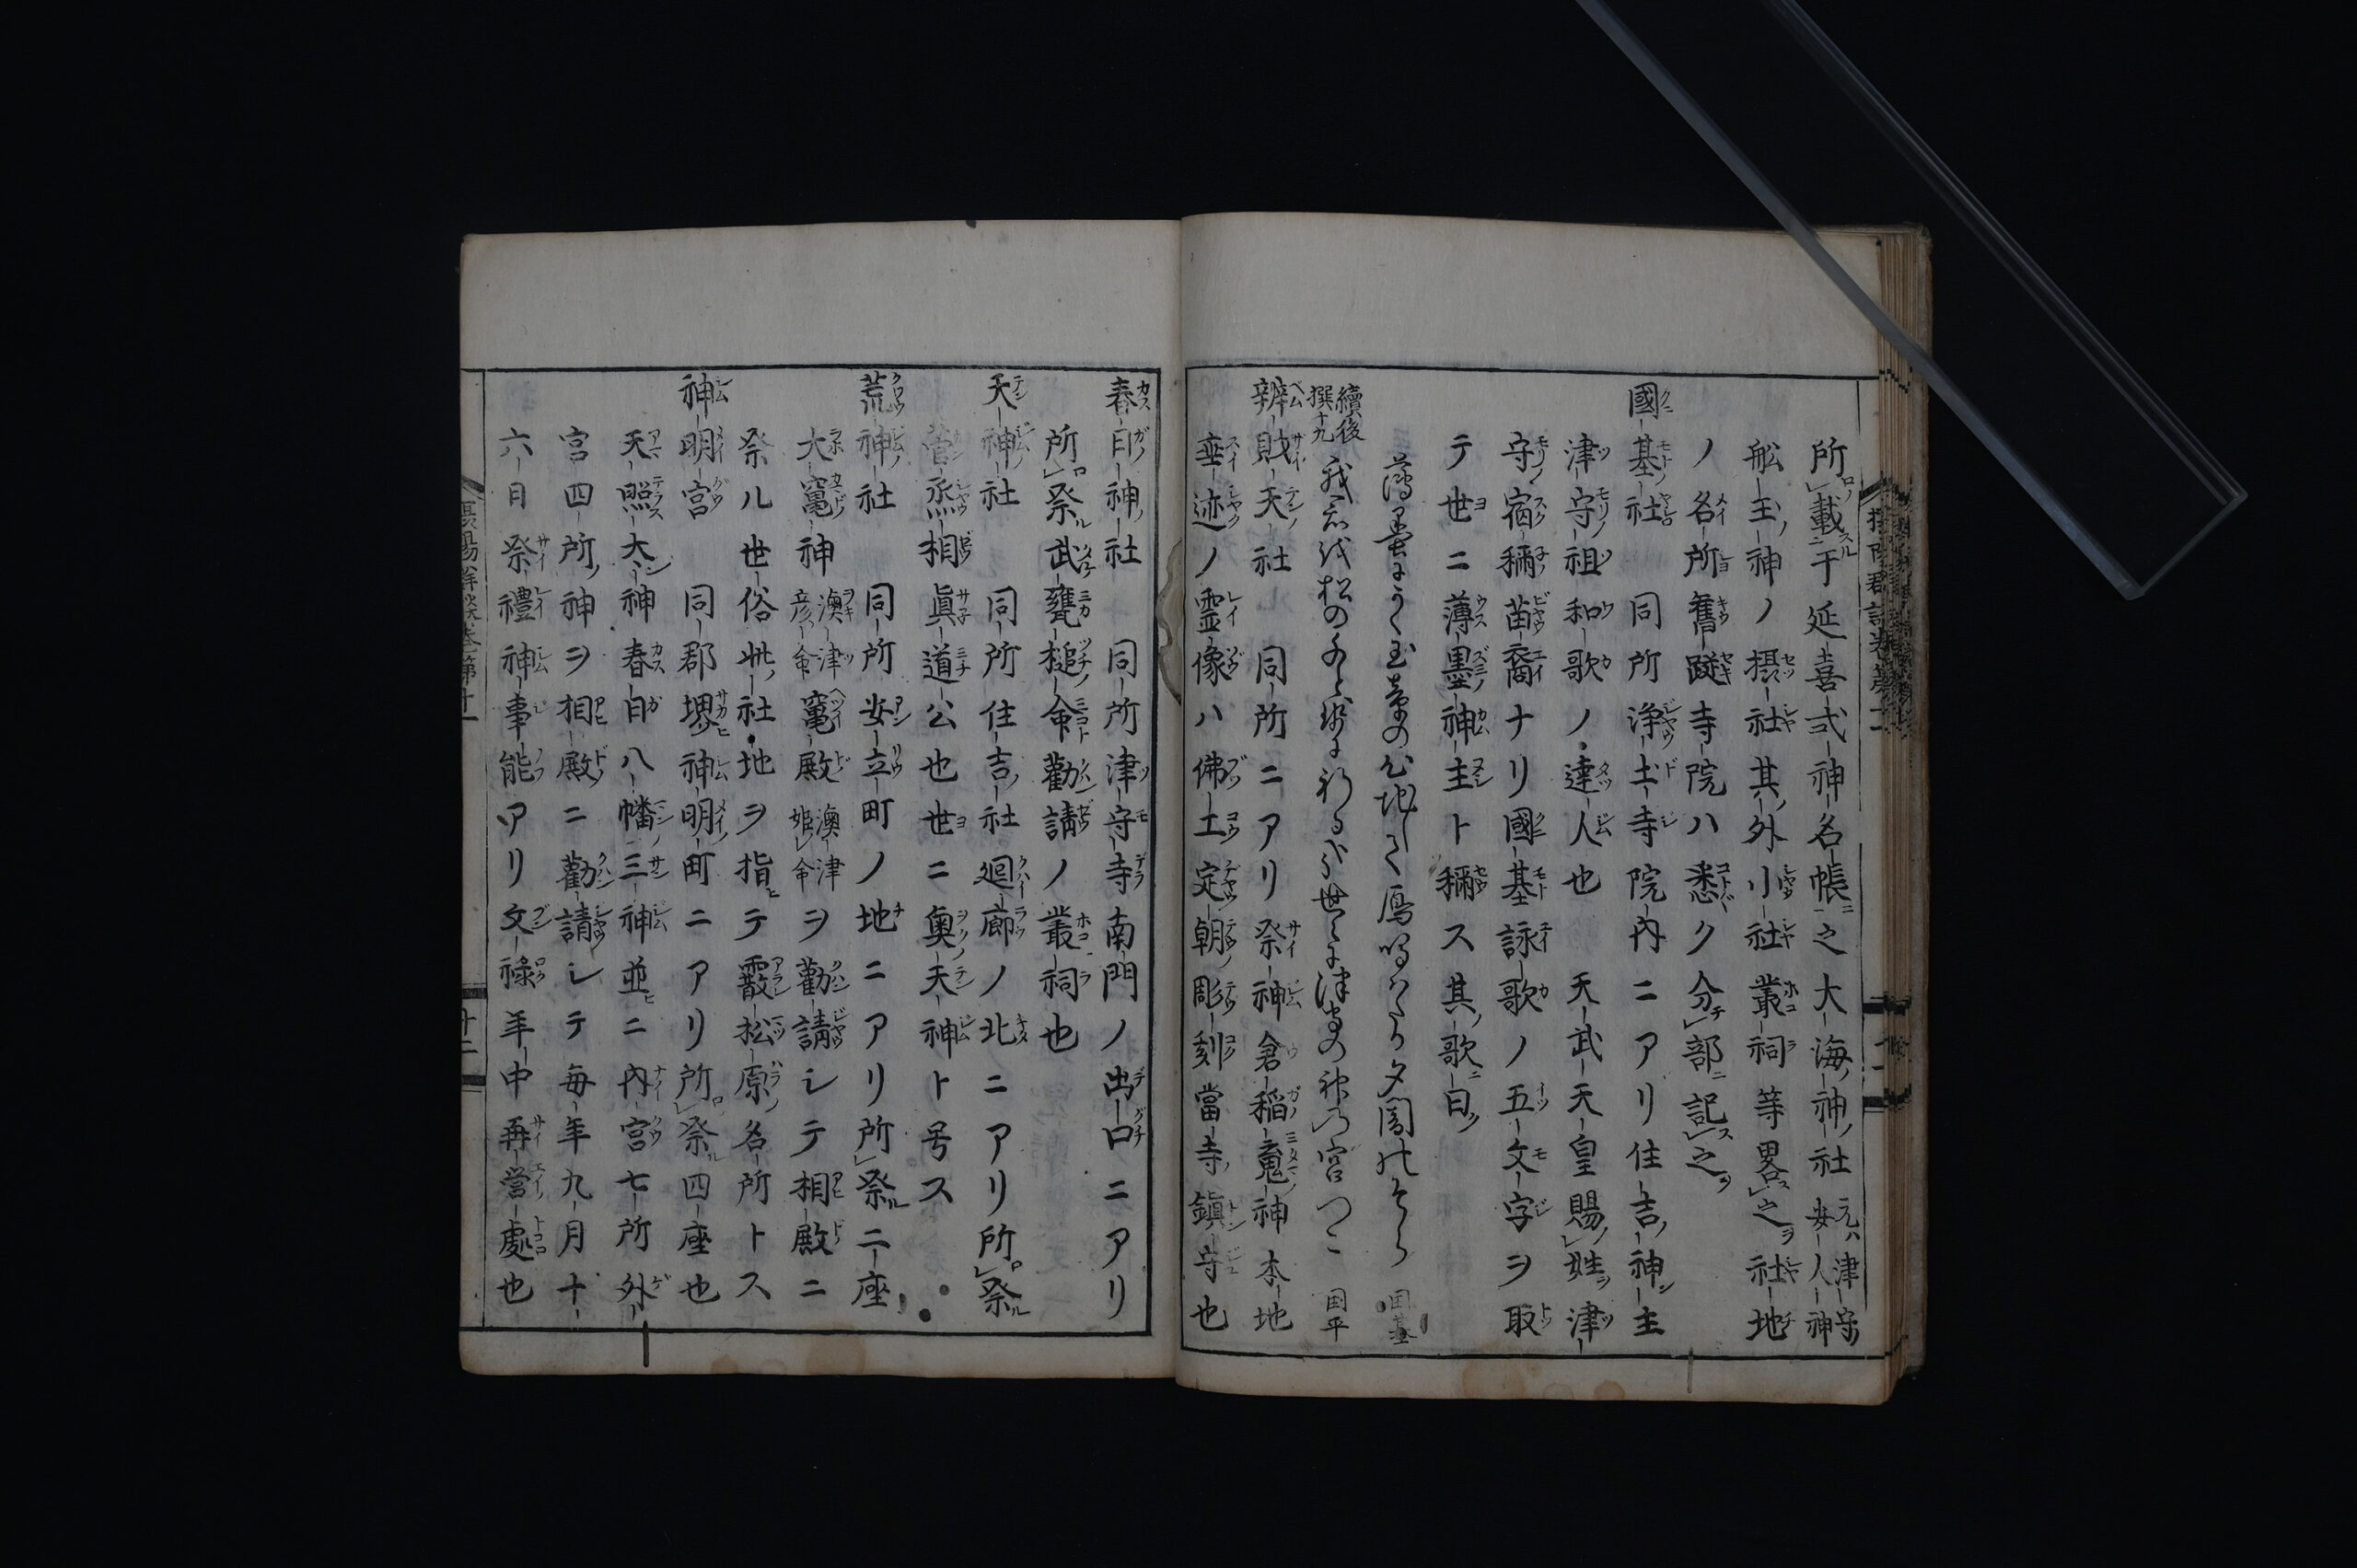 所載于延喜式神名帳之大海神社元ハ津守安人神
船玉神ノ摂社其外小社叢祠等畧之社地
ノ名所舊蹤寺院ハ悉ク分部記之
國基社 同所浄土寺院内ニアリ住吉神主
津守祖和歌ノ達人也 天武天皇賜姓津
守宿祢苗裔ナリ國基詠歌ノ五文字ヲ取
テ世ニ薄墨神主ト稱ス其歌曰
薄墨にかく玉章の心地して鴈鳴わたる夕闇のそら 国基
續後撰十九 我君代松の 祈るかな世々に津守の神の宮つこ 国平
辨財天社 同所ニアリ祭神倉稲魂神本地
垂迹ノ霊像ハ佛工定朝彫刻當寺鎮守也
春日神社 同所津守寺南門ノ出口ニアリ
所祭武甕槌命勸請ノ叢祠也
天神社 同所住吉社廻廊ノ北ニアリ所祭
菅丞相眞道公也世ニ奥天神ト号ス
荒神社 同所安立町ノ地ニアリ所祭二座
大竃神澳津彦命竃殿澳津姫命ヲ勸請シテ相殿ニ
祭ル世俗此社地ヲ指テ霰松原名所トス
神明宮 同郡堺神明町ニアリ所祭四座也
天照大神春日八幡三神並ニ内宮七所外
宮四所神ヲ相殿ニ勸請シテ毎年九月十
六日祭禮神事能アリ文祿年中再営處也